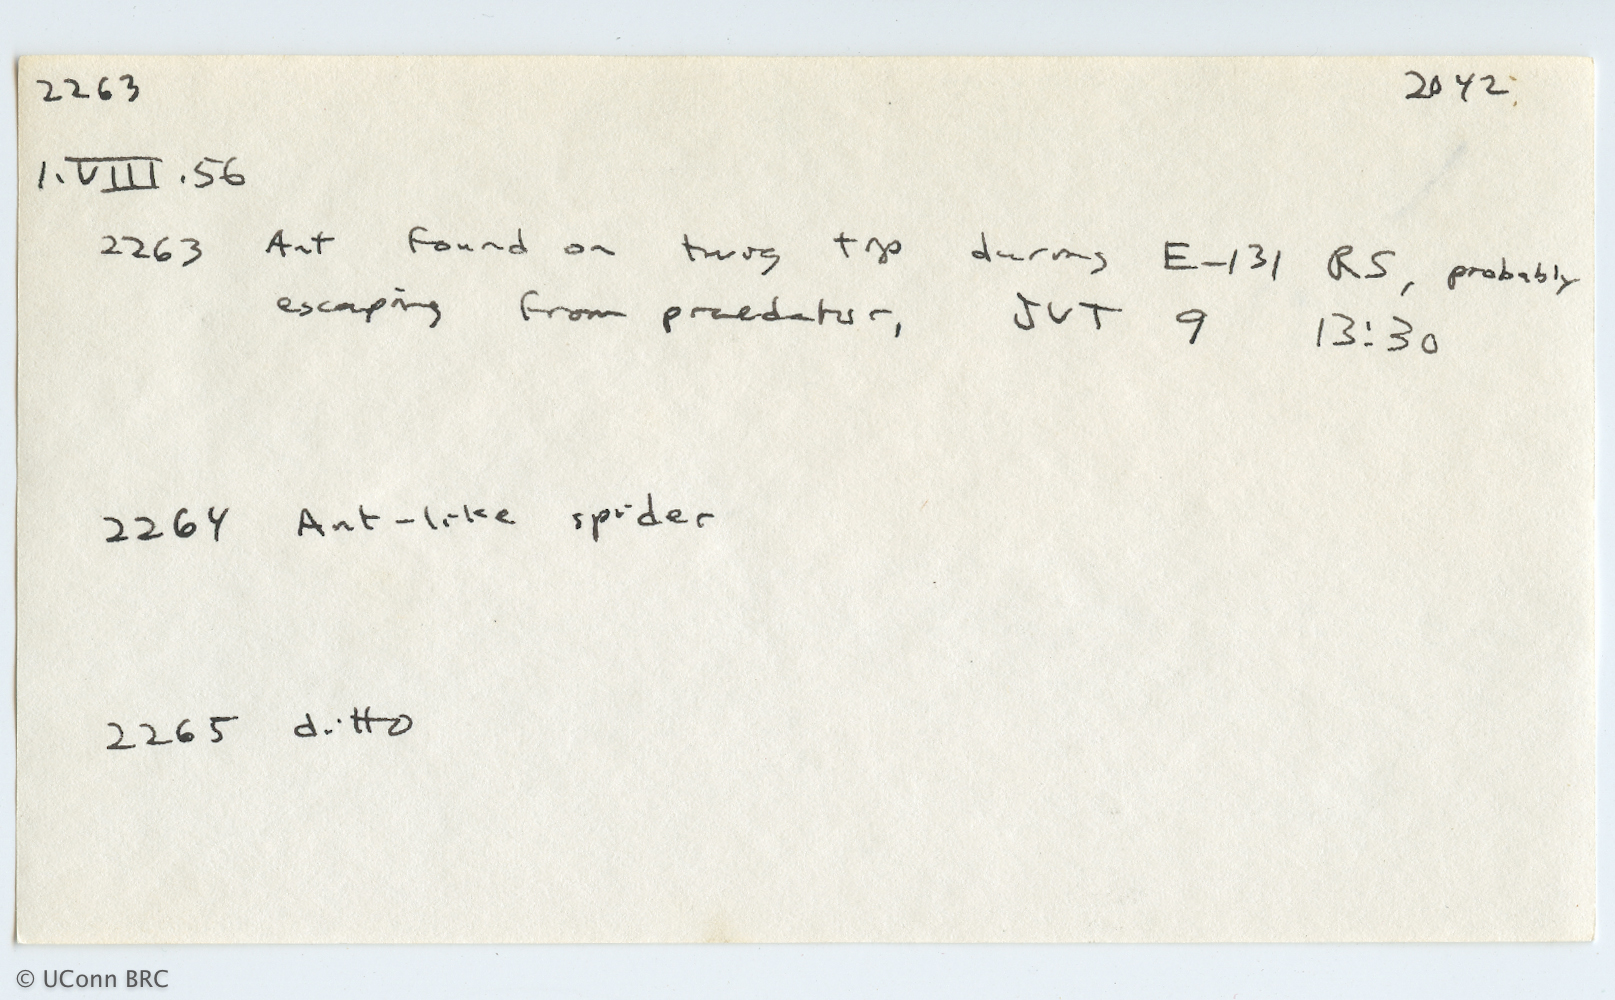 2263 2042
1.VIII.56
2263 Ant found on twig tip during E-131 RS, probably
escaping from praedator, JVT 9 13:30
2264 Ant-like spider
2265 ditto
© UConn BRC